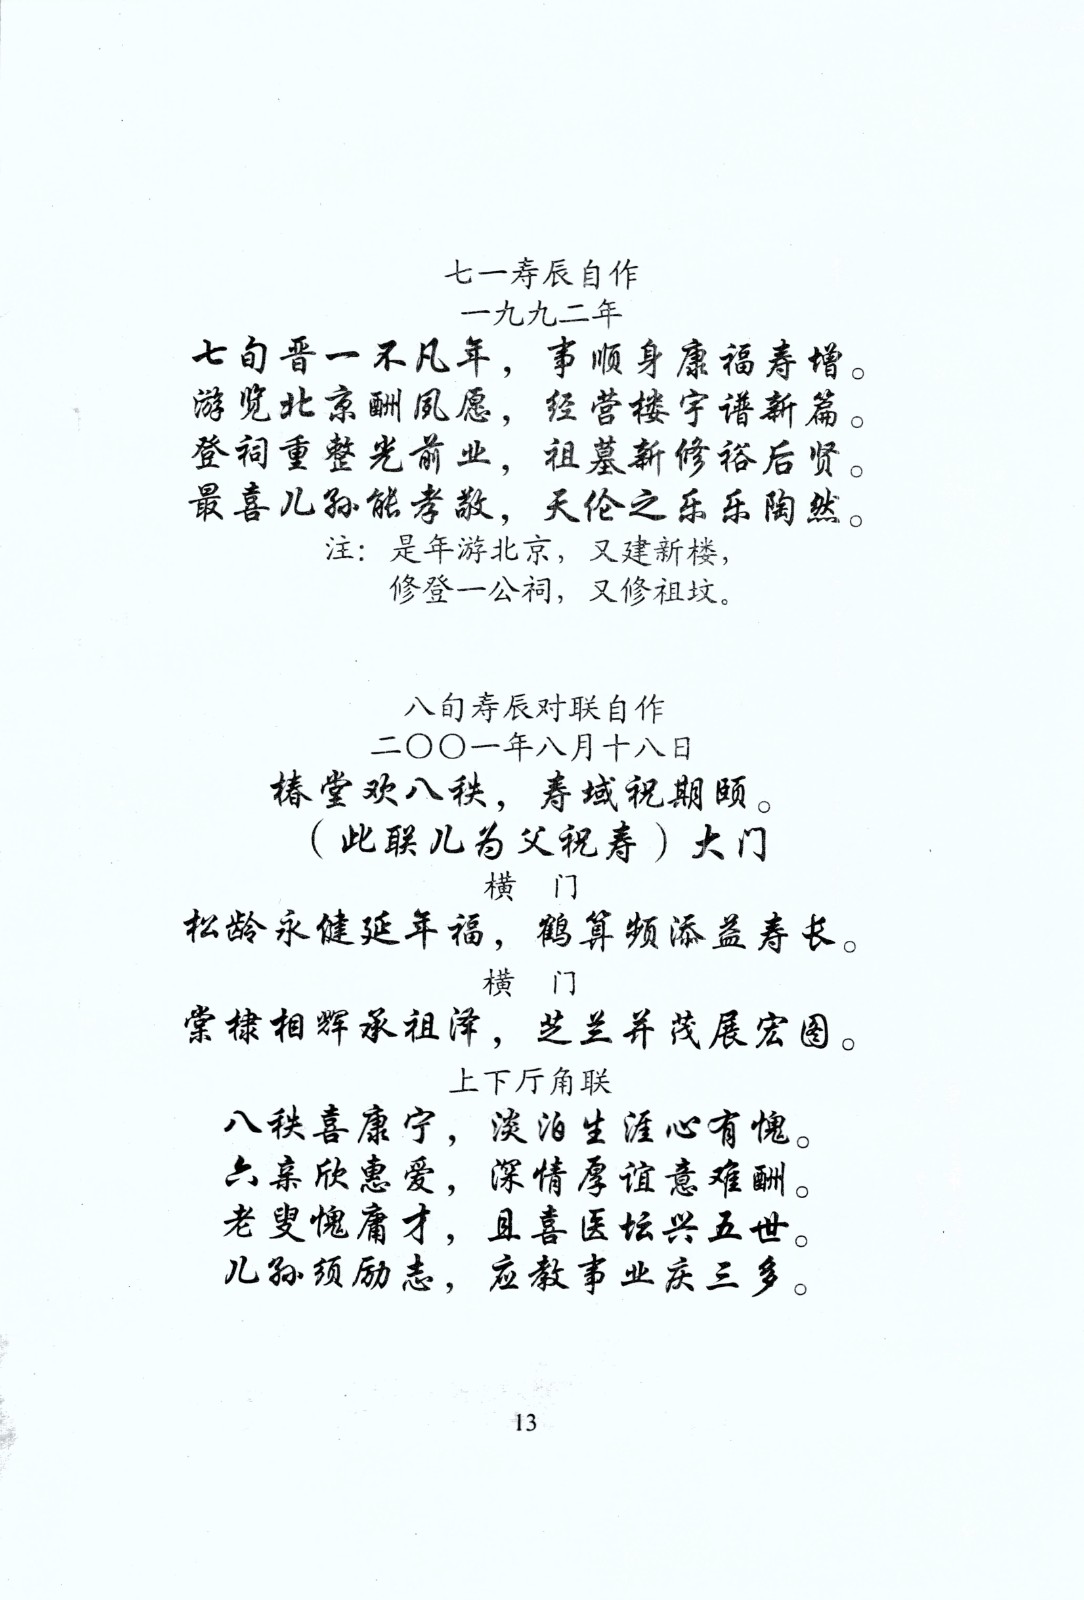 七一寿辰自作
一九九二年
七旬晋一不凡年，事顺身康福寿增。
游览北京酬夙愿，经营楼宇谱新篇。
登祠重整光前业，祖墓新修裕后贤。
最喜儿孙能孝敬，天伦之乐乐陶然。
注：是年游北京，又建新楼，
修登一公祠，又修祖坟。
八旬寿辰对联自作
二〇〇一年八月十八日
椿堂欢八秩，寿域祝期颐。
（此联儿为父祝寿）大门
横　门
松龄永健延年福，鹤算频添益寿长。
横　门
棠棣相辉承祖泽，芝兰并茂展宏图。
上下厅角联
八秩喜康宁，淡泊生涯心有愧。
六亲欣惠爱，深情厚谊意难酬。
老叟愧庸才，且喜医坛兴五世。
儿孙须励志，应教事业庆三多。
13